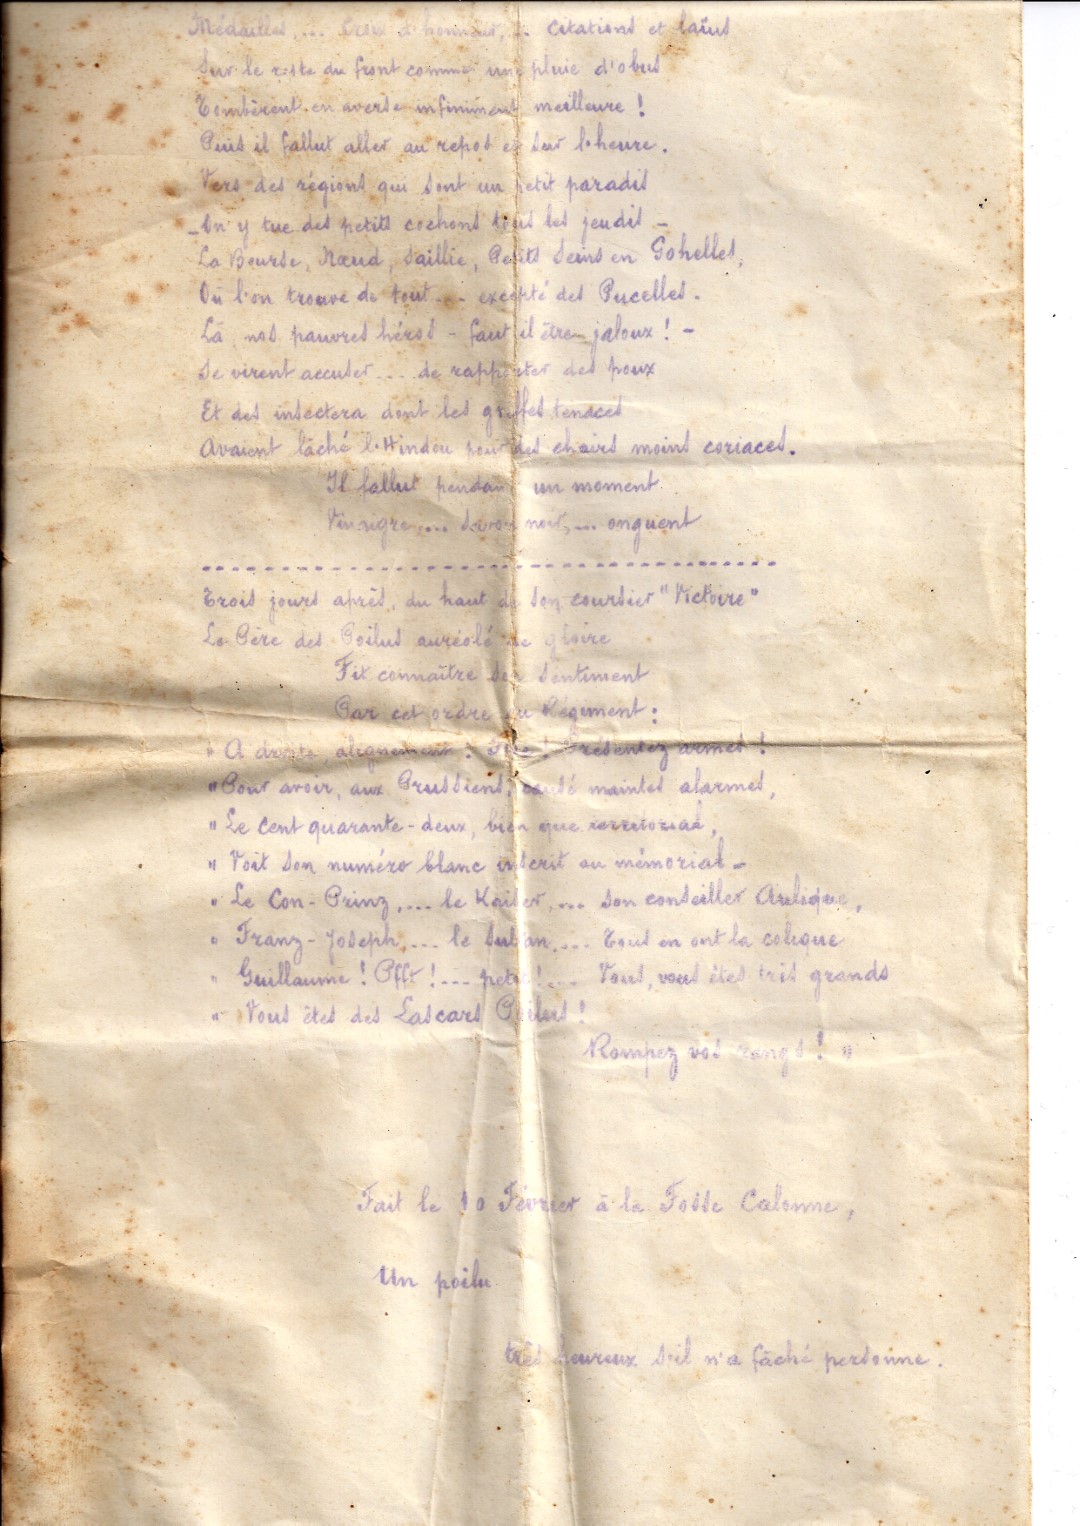 Médailles, ... Croix d'honneur, ... Citations et laïus
Sur le reste du front comme une pluie d'obus
Tombèrent en averse infiniment meilleure !
Puis il fallut aller au repos et sur l'heure.
Vers des régions qui sont un petit paradis
_ On y tue des petits cochons tous les jeudis _
La Bourse, Nœud, Saillie, Petits Seins en Gohelles,
Où l'on trouve de tout ... excepté des Pucelles.
Là, nos pauvres héros - faut il être jaloux ! -
Se virent accuser .... de rapporter des poux
Et des insectera dont les griffes tenaces
Avaient lâché l'Hindou pour des chairs moins coriaces.
Il fallut pendant un moment
Vinaigre .... Savon noir, ... onguent
Trois jours après, du haut de son coursier "Victoire"
Le Père des Poilus auréolé de gloire
Fit connaître son sentiment
Par cet ordre du Régiment :
" A droite, alignement ! Fixe ! Présentez armes !
" Pour avoir, aux Prussiens, causé maintes alarmes,
" Le Cent quarante-deux, bien que territorial,
" Voit son numéro blanc inscrit au mémorial -
" Le Con-Prinz, ... le Kaiser, ... son conseiller Aulique,
" Franz-Joseph, ... le Sultan, ... Tous en ont la colique
" Guillaume ! Pfft ! ... ! ... Vous, vous êtes très grands
" Vous êtes des Lascars Poilus !
Rompez vos rangs ! "
Fait le 10 Février à la Fosse Calonne,
Un poilu
très heureux s'il n'a fâché personne.